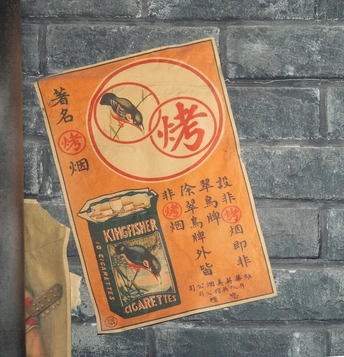 烤
著名烤烟
設非烤烟即非
翠鳥牌
除翠鳥牌外皆
非烤烟
KINGFISHER
10 CIGARETTES
CIGARETTES